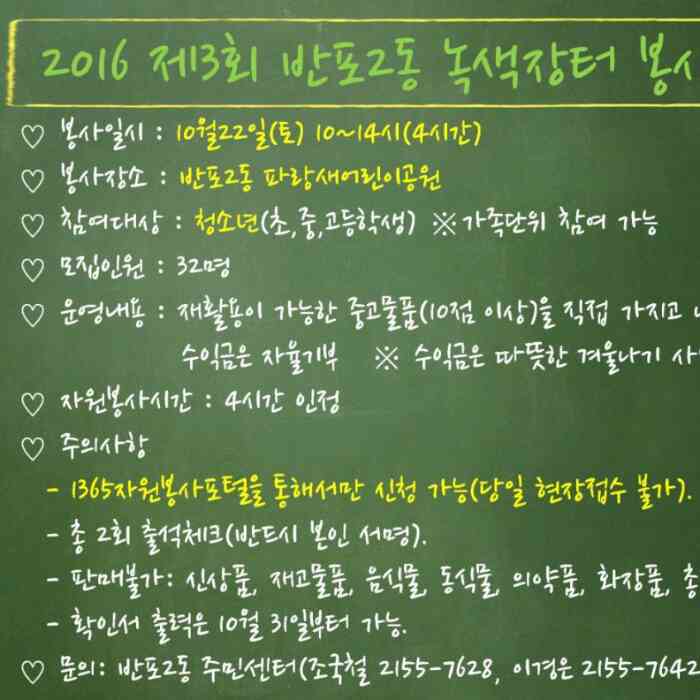 2016 제3회 반포2동 녹색장터 봉사
♡ 봉사일시 : 10월22일(토) 10~14시(4시간)
♡ 봉사장소 : 반포2동 파랑새어린이공원
♡ 참여대상 : 청소년(초,중,고등학생) ※가족단위 참여 가능
♡ 모집인원 : 32명
♡ 운영내용 : 재활용이 가능한 중고물품(10점 이상)을 직접 가지고
수익금은 자율기부 ※ 수익금은 따뜻한 겨울나기 사
♡ 자원봉사시간 : 4시간 인정
♡ 주의사항
- 1365자원봉사포털을 통해서만 신청 가능(당일 현장접수 불가).
- 총 2회 출석체크(반드시 본인 서명).
- 판매불가: 신상품, 재고물품, 음식물, 동식물, 의약품, 화장품, 총
- 확인서 출력은 10월 31일부터 가능.
♡ 문의: 반포2동 주민센터(조국철 2155-7628, 이경은 2155-7642